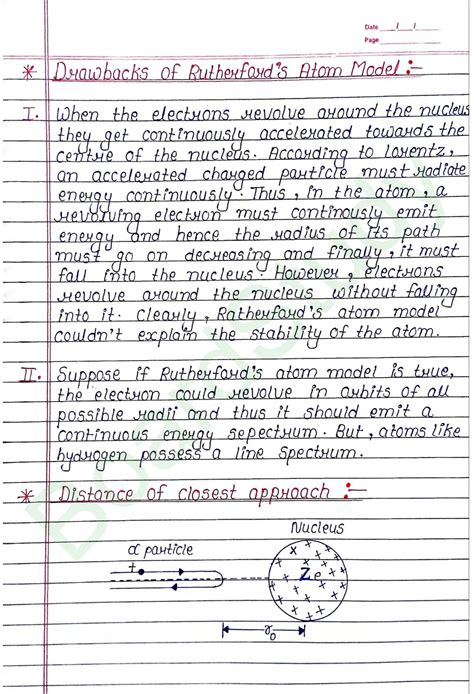 Date / /
Page
* Drawbacks of Rutherford's Atom Model :-
I. When the electrons revolve around the nucleus
they get continuously accelerated towards the
centre of the nucleus. According to Lorentz,
an accelerated charged particle must radiate
energy continuously. Thus, in the atom, a
revolving electron must continously emit
energy and hence the radius of its path
must go on decreasing and finally, it must
fall into the nucleus. However, electrons
revolve around the nucleus without falling
into it. Clearly, Ratherford's atom model
couldn't explain the stability of the atom.
II. Suppose if Rutherford's atom model is true,
the electron could revolve in orbits of all
possible radii and thus it should emit a
continuous energy sepectrum. But, atoms like
hydrogen possess a line spectrum.
* Distance of closest approach :-
Nucleus
α particle
+
Ze
r₀